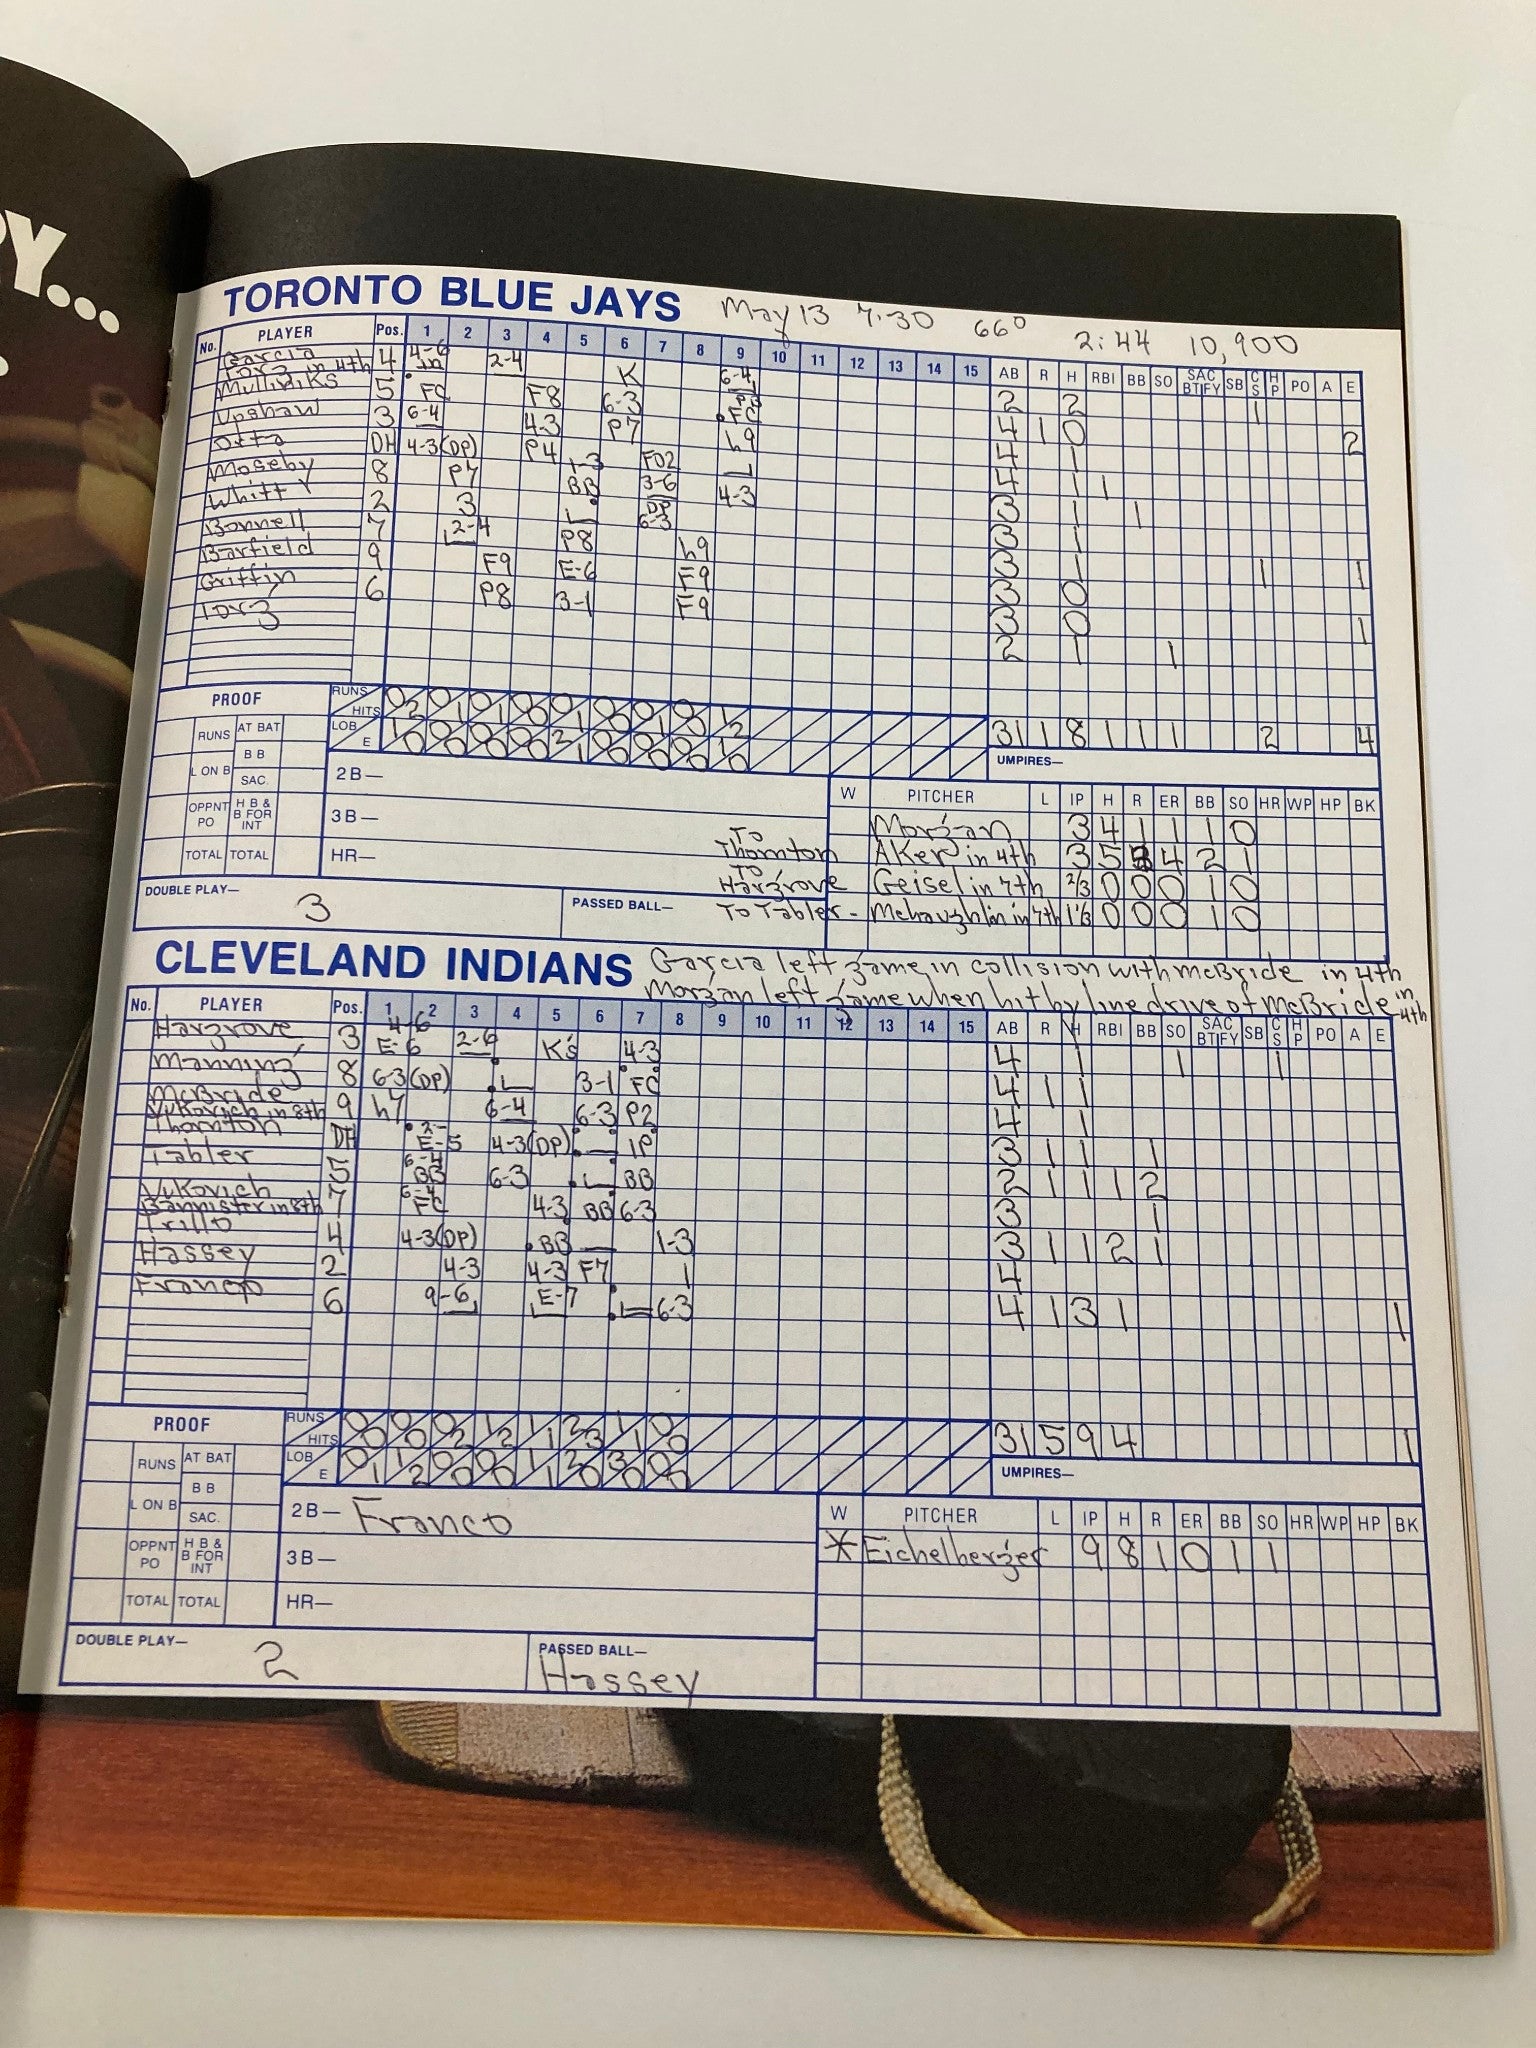 Y...
TORONTO BLUE JAYS May 13 7:30 66° 2:44 10,900
No. PLAYER Pos. 1 2 3 4 5 6 7 8 9 10 11 12 13 14 15 AB R H RBI BB SO SAC BT/FY SB CS HP PO A E
Garcia 4 4-6 2-4 K 6-4 2 2 1
Iorg in 4th
Mulliniks 5 FC F8 6-3 FC 4 1 0 2
Upshaw 3 6-4 4-3 P7 h9 4 1
Orta DH 4-3(DP) P4 1-3 FO2 4 1 1
Moseby 8 P7 BB 3-6 4-3 3 1 1
Whitt 2 3 DP 6-3 3 1
Bonnell 7 2-4 P8 h9 3 1 1 1
Barfield 9 F9 E-6 F9 3 0
Griffin 6 P8 3-1 F9 3 0 1
Iorg 2 1 1
PROOF RUNS HITS 0/2 0/1 0/1 0/0 0/1 0/0 0/1 0/0 1/2
RUNS AT BAT LOB E 1/0 0/0 0/0 0/0 2/1 0/0 0/0 0/0 1/0 31 1 8 1 1 1 2 4
B B
L ON B SAC. 2B— UMPIRES—
OPPNT PO H B & B FOR INT 3B— W PITCHER L IP H R ER BB SO HR WP HP BK
Morgan 3 4 1 1 1 0
TOTAL TOTAL HR— To Thornton Aker in 4th 3 5 4 2 1
To Hargrove Geisel in 7th 2/3 0 0 0 1 0
DOUBLE PLAY— 3 PASSED BALL— To Tabler - McLaughlin in 7th 1 1/3 0 0 0 1 0
CLEVELAND INDIANS Garcia left game in collision with McBride in 4th
Morgan left game when hit by line drive of McBride in 4th
No. PLAYER Pos. 1 2 3 4 5 6 7 8 9 10 11 12 13 14 15 AB R H RBI BB SO SAC BT/FY SB CS HP PO A E
Hargrove 3 4-6 E-6 2-6 K's 4-3 4 1 1 1
Manning 8 6-3(DP) 3-1 FC 4 1 1
McBride 9 h7 6-4 6-3 P2 4 1
Vukovich in 8th
Thornton DH 2- E-5 4-3(DP) IP 3 1 1 1
Tabler 5 6-4 BB 6-3 BB 2 1 1 1 2
Vukovich 7 6-4 FC 4-3 BB 6-3 3 1
Bannister in 8th
Trillo 4 4-3(DP) BB 1-3 3 1 1 2 1
Hassey 2 4-3 4-3 F7 1 4
Franco 6 9-6 E-7 6-3 4 1 3 1 1
PROOF RUNS HITS 0/0 0/0 0/2 1/2 1/1 2/3 1/1 0/0
RUNS AT BAT LOB E 0/1 1/2 0/0 0/0 1/1 2/0 3/0 0/0 31 5 9 4 1
B B
L ON B SAC. 2B— Franco UMPIRES—
OPPNT PO H B & B FOR INT 3B— W PITCHER L IP H R ER BB SO HR WP HP BK
* Eichelberger 9 8 1 0 1 1
TOTAL TOTAL HR—
DOUBLE PLAY— 2 PASSED BALL— Hassey